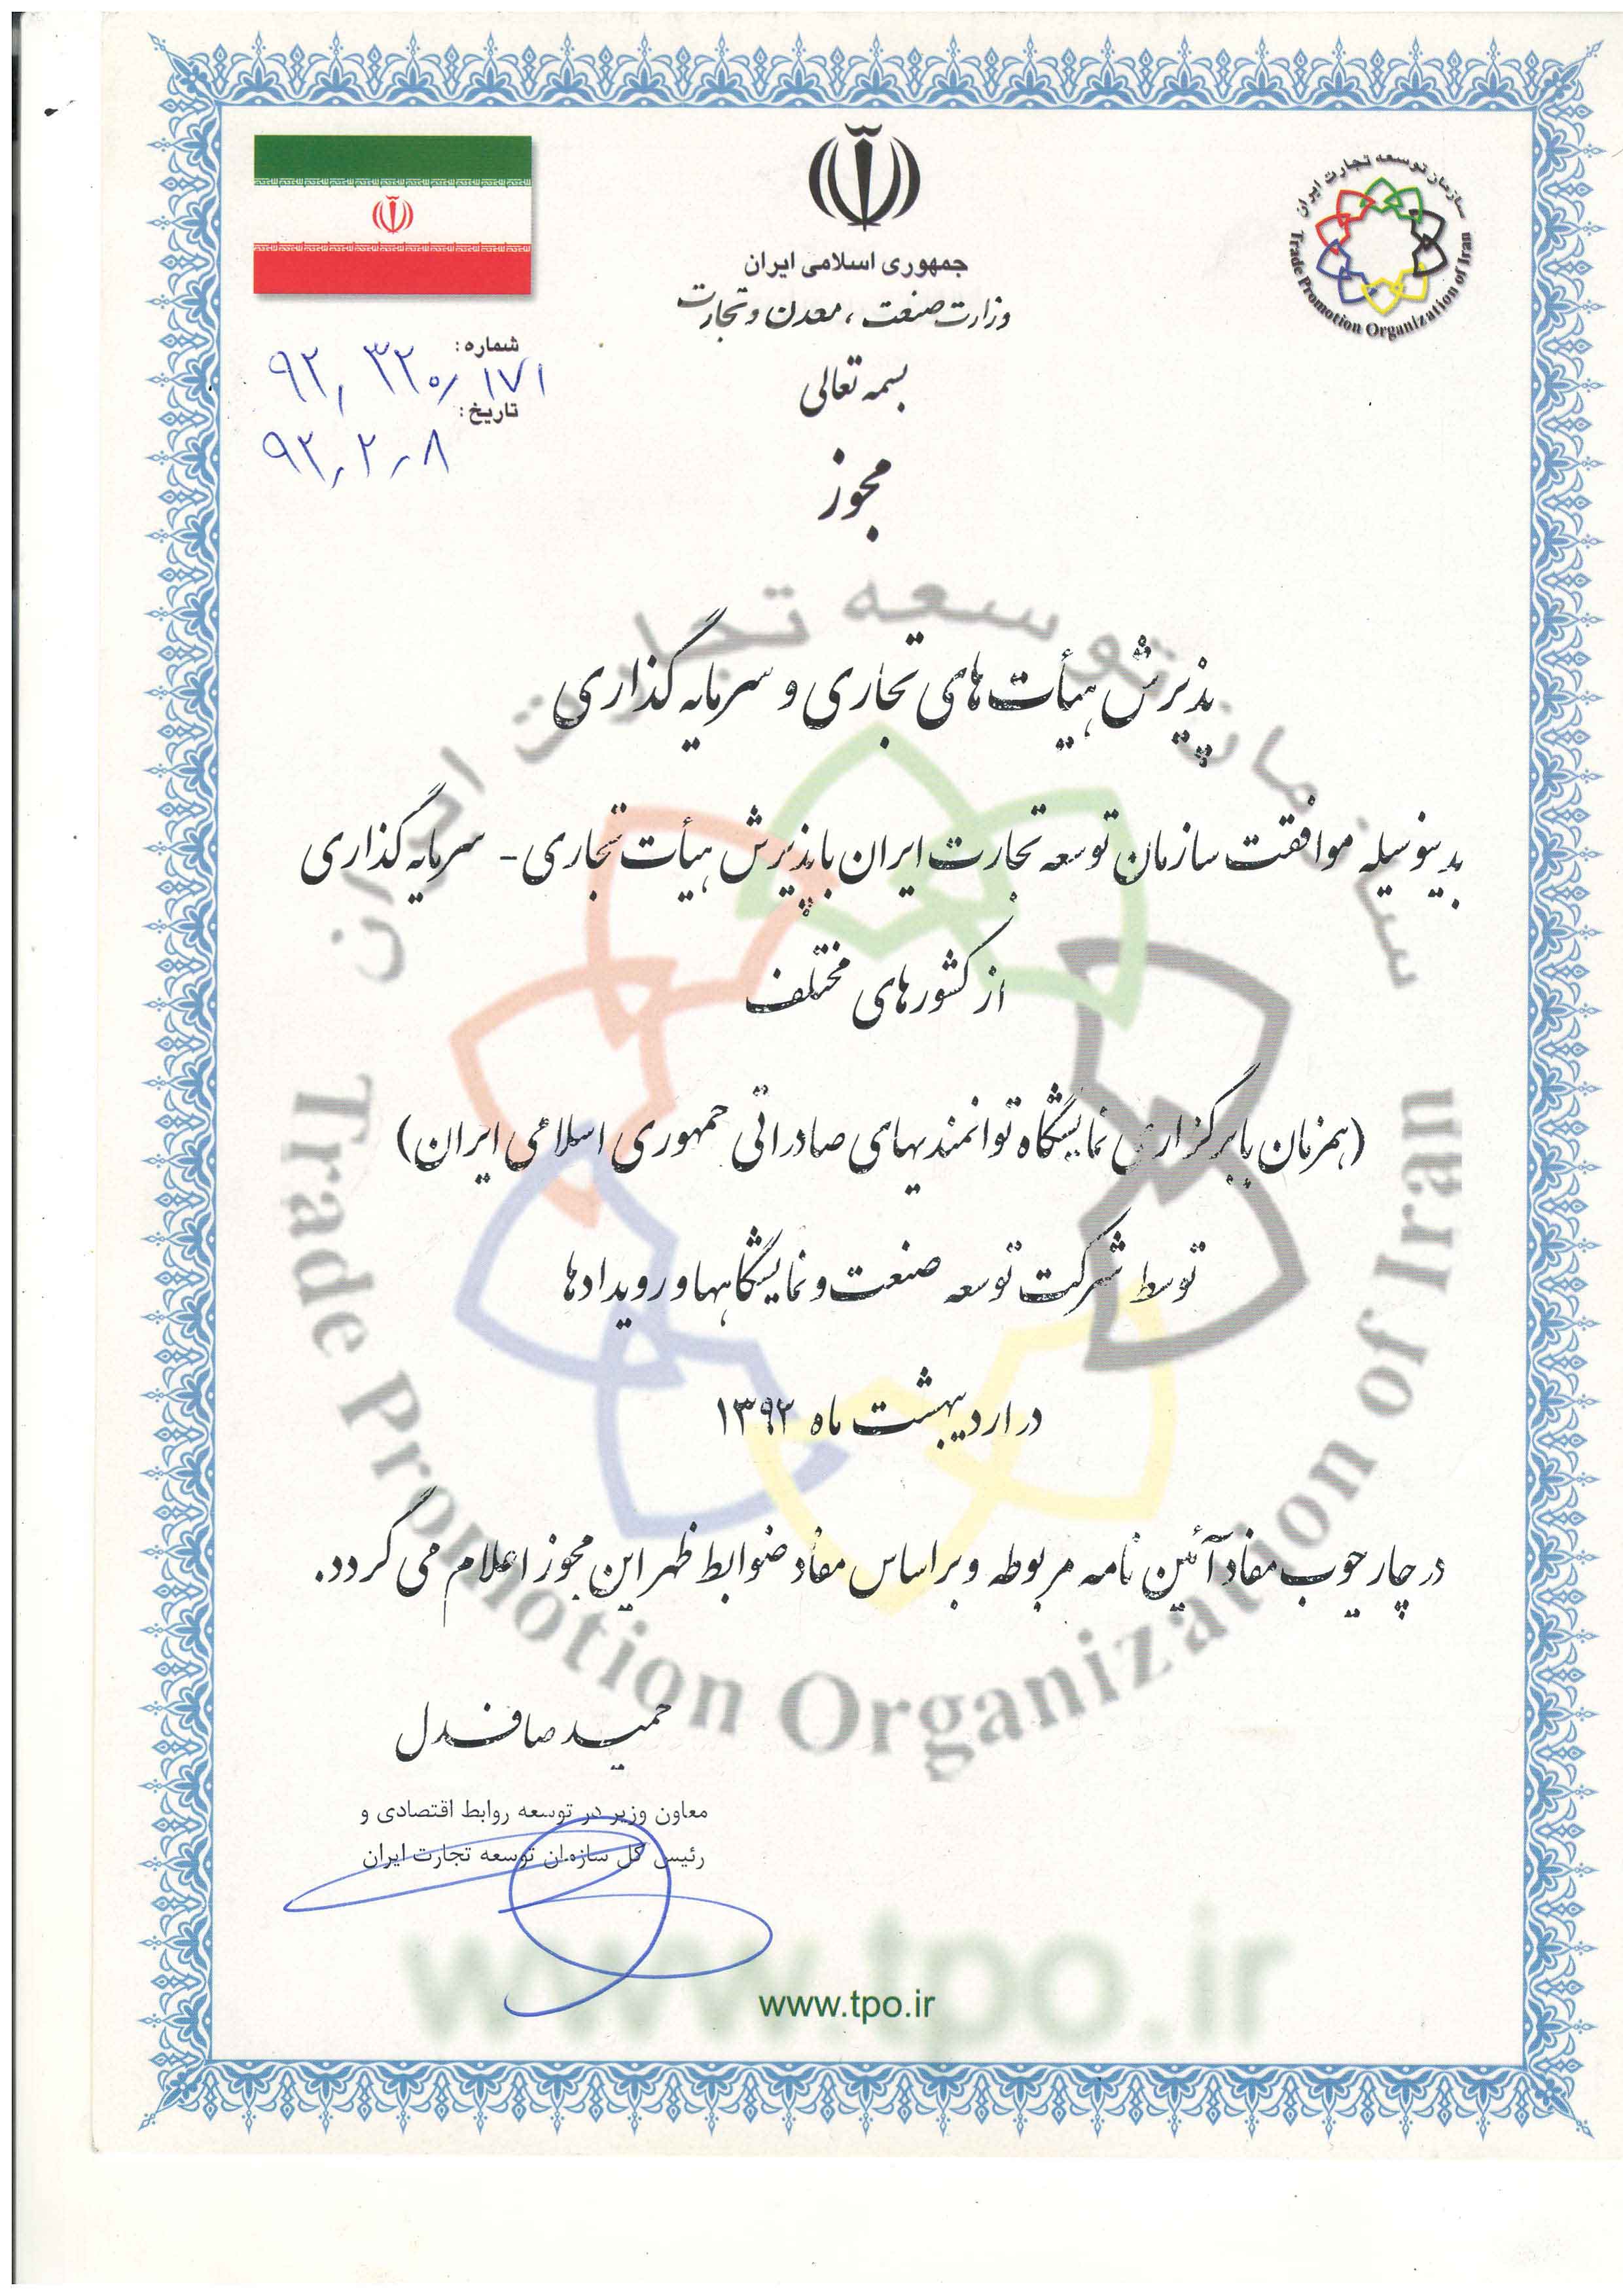 سازمان توسعه تجارت ایران
Trade Promotion Organization of Iran
جمهوری اسلامی ایران
وزارت صنعت، معدن و تجارت
شماره: ۹۲،۳۲۰/۱۷۱
تاریخ: ۹۲،۲،۸
بسمه تعالی
مجوز
پذیرش هیأت های تجاری و سرمایه گذاری
بدینوسیله موافقت سازمان توسعه تجارت ایران با پذیرش هیأت تجاری - سرمایه گذاری
از کشورهای مختلف
(همزمان با برگزاری نمایشگاه توانمندیهای صادراتی جمهوری اسلامی ایران)
توسط شرکت توسعه صنعت و نمایشگاهها و رویدادها
در اردیبهشت ماه ۱۳۹۲
در چارچوب مفاد آئین نامه مربوطه و براساس مفاد ضوابط ظهر این مجوز اعلام می گردد.
حمید صافدل
معاون وزیر در توسعه روابط اقتصادی و
رئیس کل سازمان توسعه تجارت ایران
www.tpo.ir
سازمان توسعه تجارت ایران
Trade Promotion Organization of Iran
www.tpo.ir